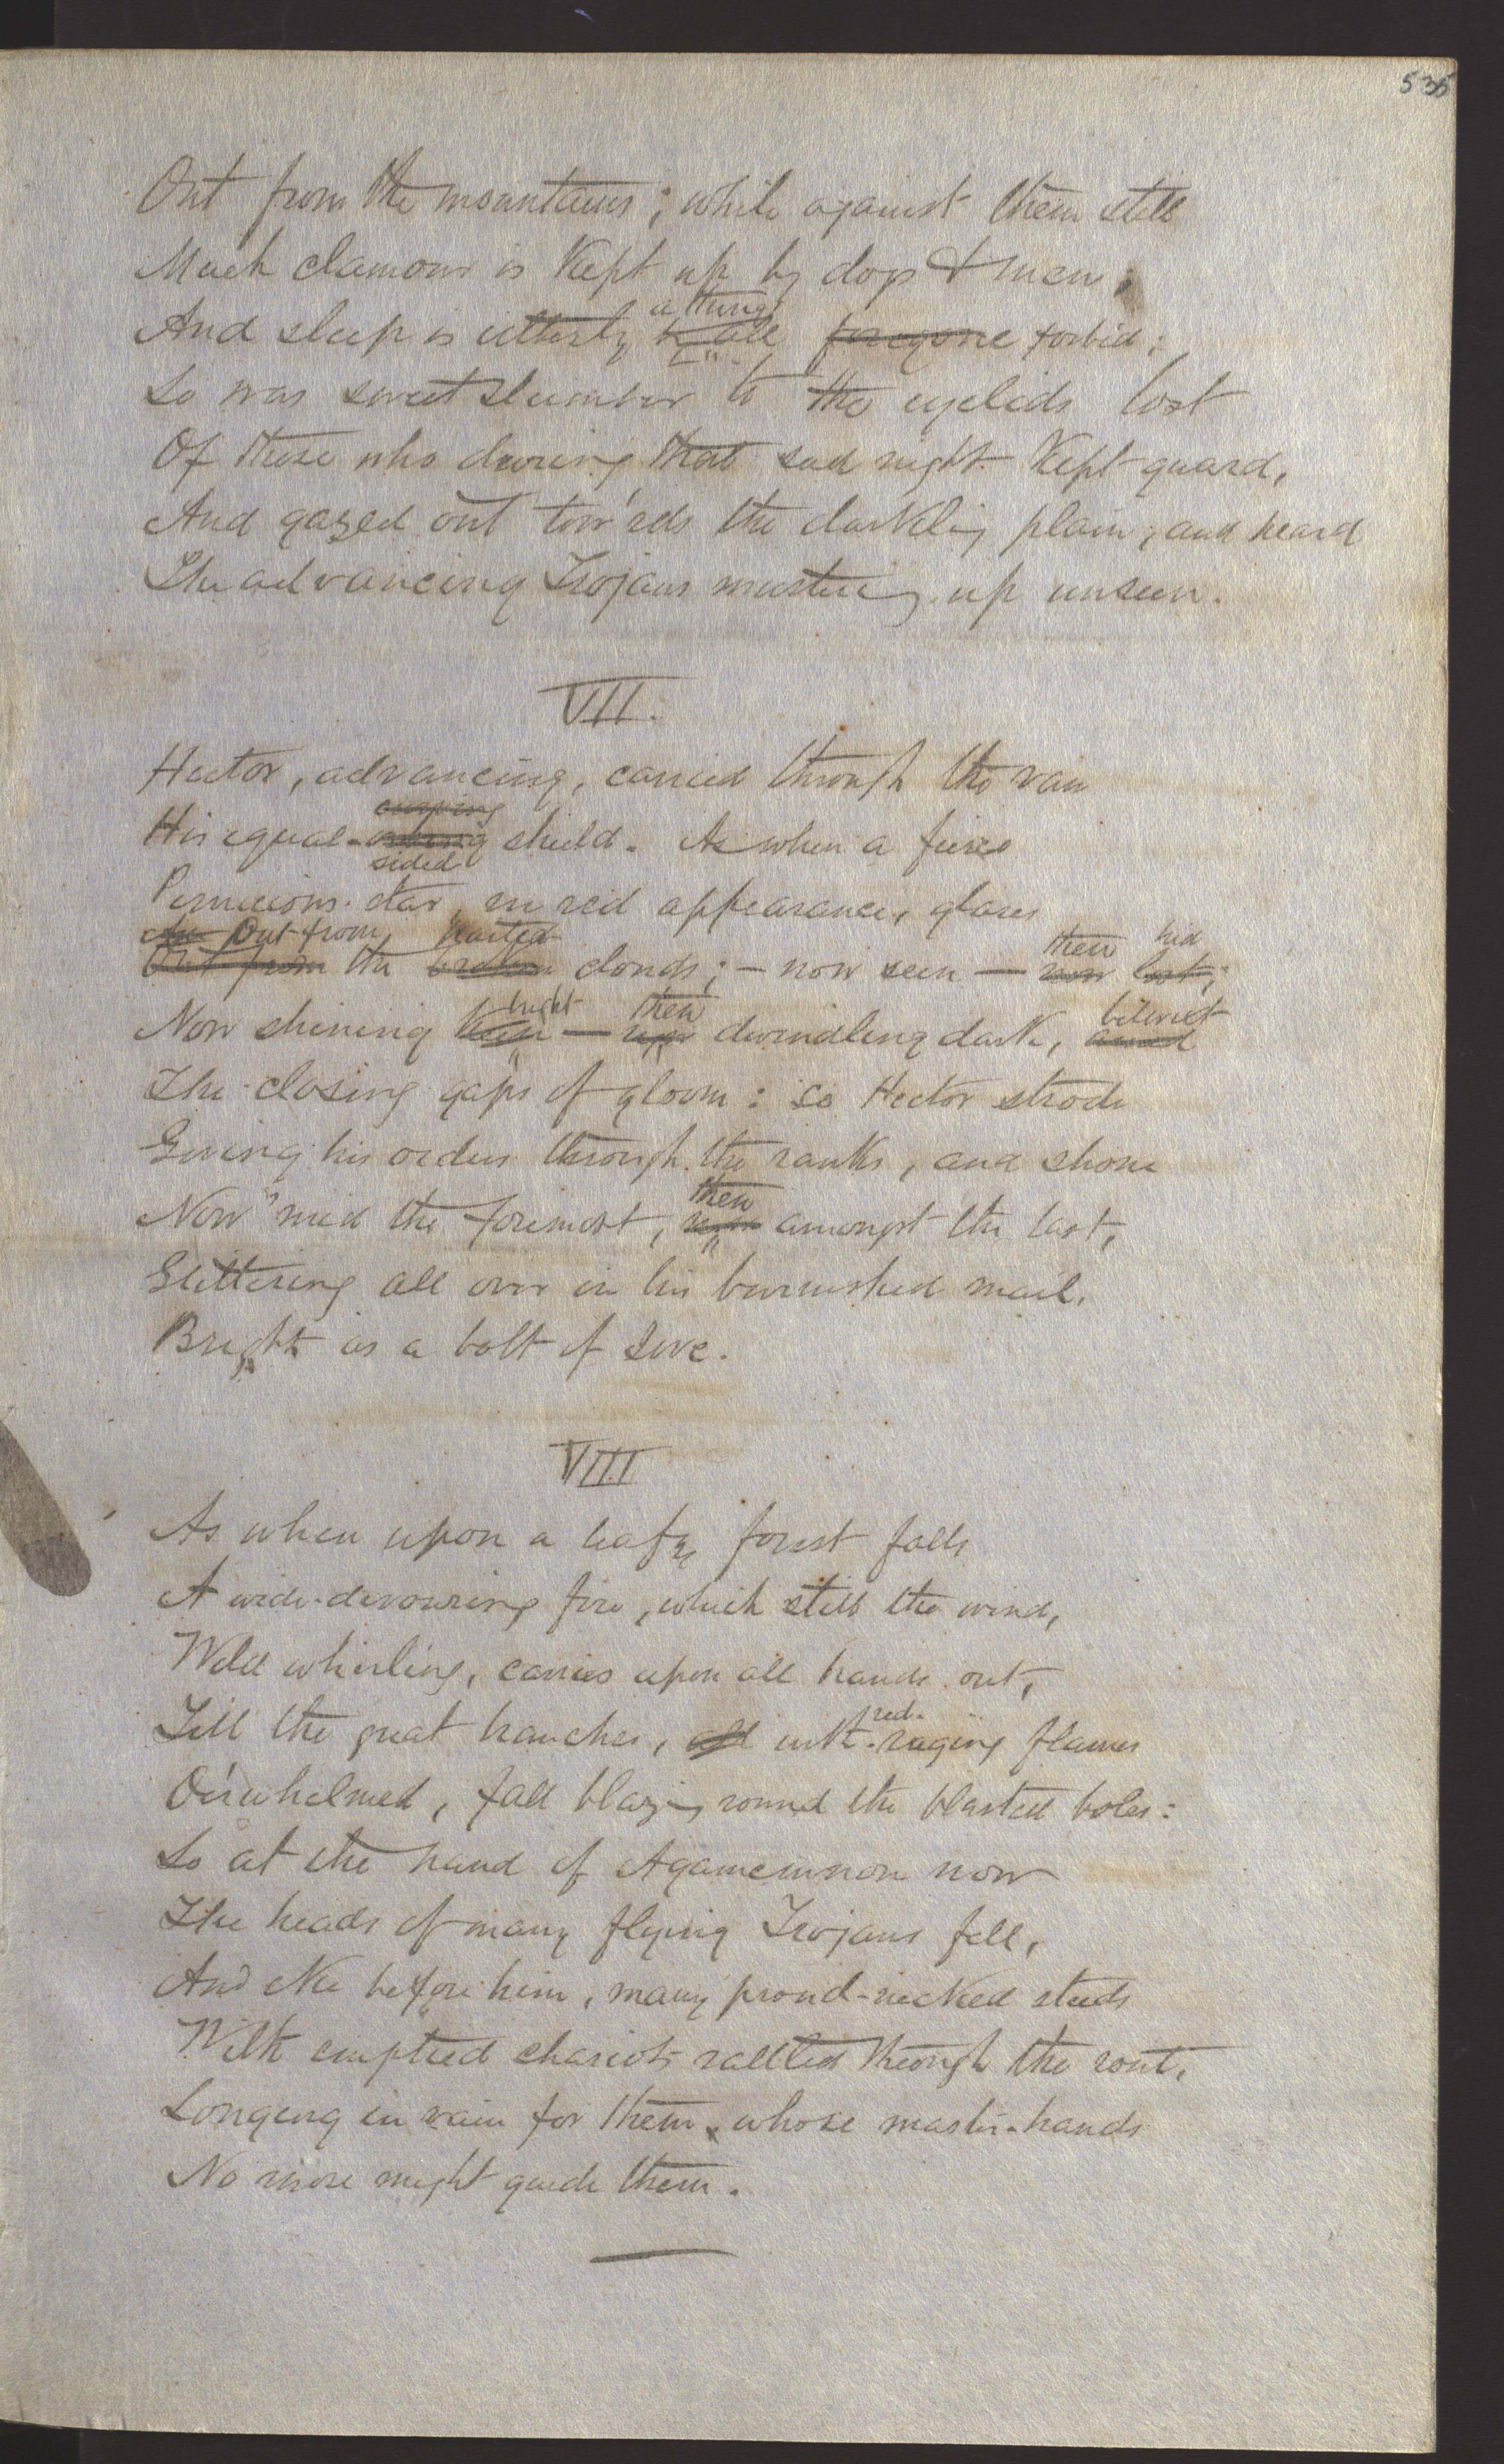 535
Out from the mountains; while against them still
Much clamour is kept up by dogs & men;
a thing
And sleep is utterly to all foregone forbid:
So was sweet slumber to the eyelids lost
Of those who during that sad night kept guard,
And gazed out tow'rds the darkling plain, and heard
The advancing Trojans mustering up unseen.
VII.
Hector, advancing, carried through the van
His equal- shield. As when a fierce
sided
Pernicious star, in red appearance, glares
Out from parted then hid
Out from the broken clouds; – now seen – now lost;
bright then betwixt
Now shining keen – now dwindling dark, amid
The closing gaps of gloom: so Hector strode
Giving his orders through the ranks, and shone
then
Now 'mid the foremost, now amongst the last,
Glittering all over in his burnished mail,
Bright as a bolt of Jove.
VIII
As when upon a leafy forest falls
A wide-devouring fire, which still the wind,
Wild whirling, carries upon all hands out,
red-
Till the great branches, all with raging flames
O'erwhelmed, fall blazing round the blasted boles:
So at the hand of Agamemnon now
The heads of many flying Trojans fell,
And eke before him, many proud-necked steeds
With emptied chariots rattled through the rout,
Longing in vain for them, whose master-hands
No more might guide them.